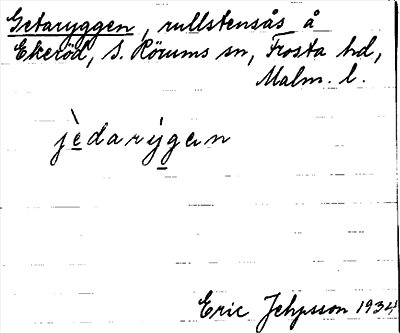 Getaryggen, rullstensås å
Ekeröd, S. Rörums sn, Frosta hd,
Malm. l.
jèdarýgen
Eric Jehpsson 1934